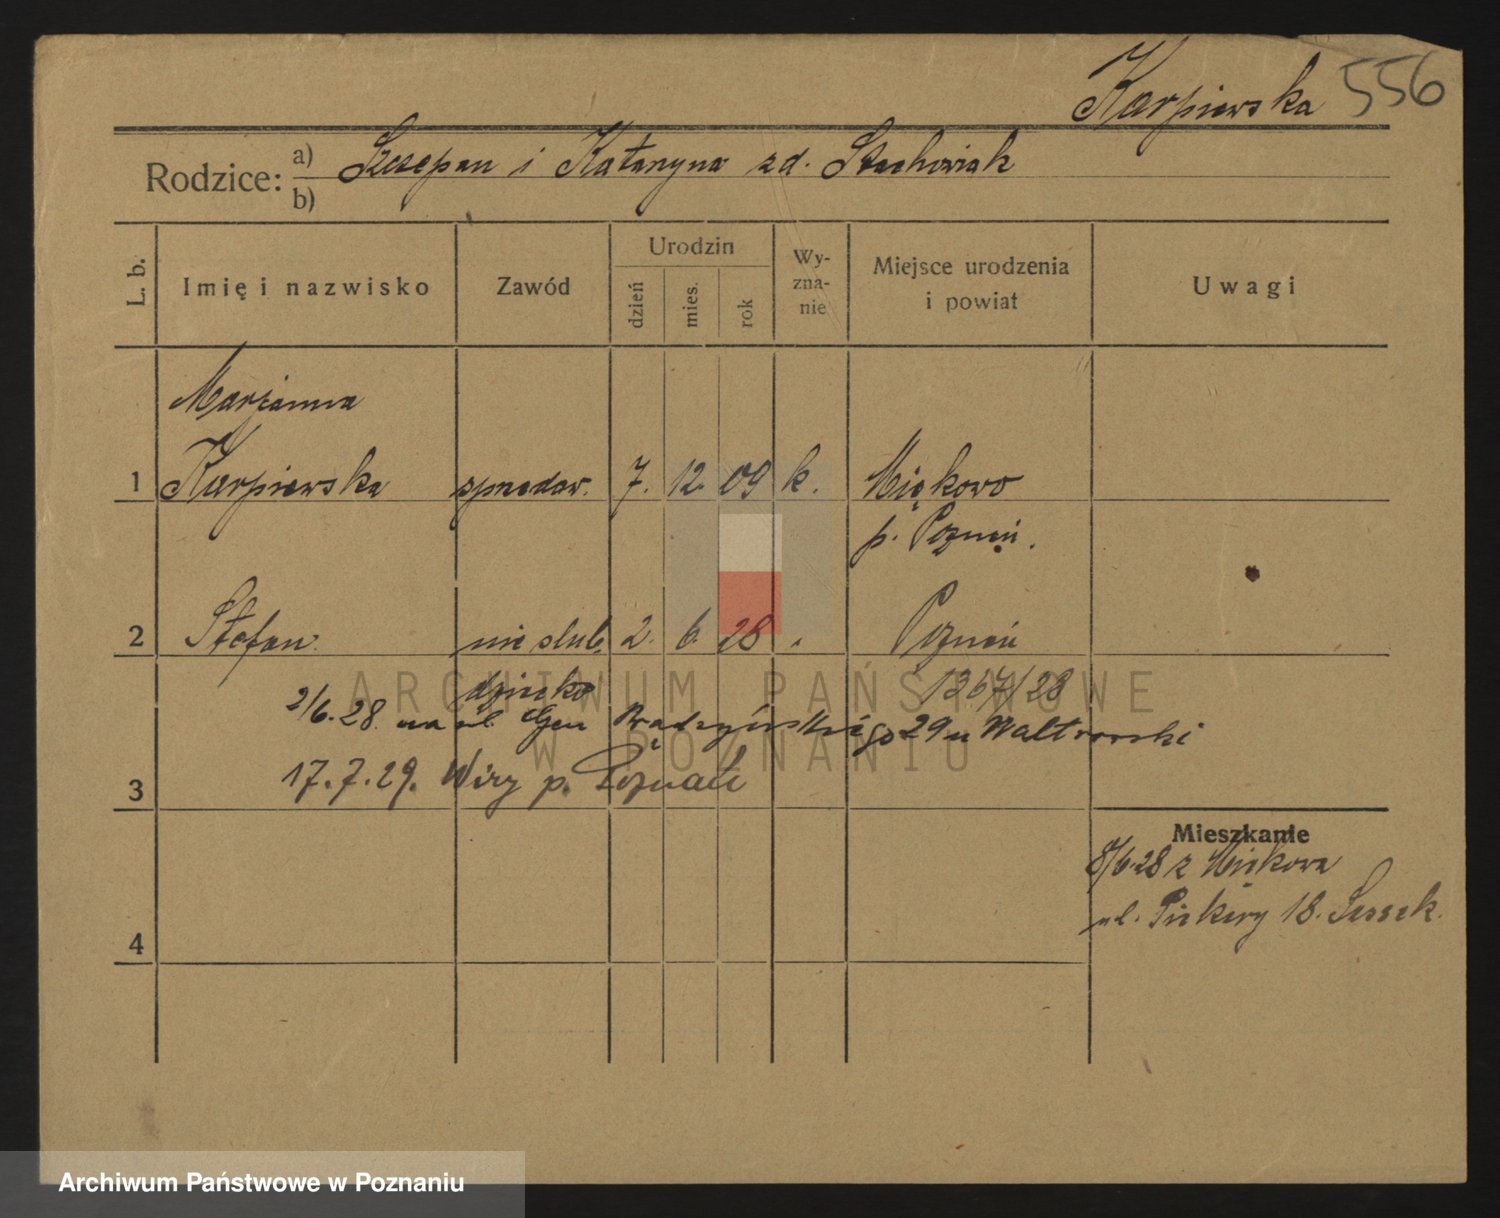 Karpiewska 556
Rodzice: a) Szczepan i Katarzyna zd. Stachowiak
b)
L. b. Imię i nazwisko Zawód Urodzin dzień mies. rok Wy-zna-nie Miejsce urodzenia i powiat Uwagi
Marjanna
1 Karpiewska sprzedaw. 7. 12. 09 k. Miękowo
p. Poznań.
2 Stefan nieślub. 2. 6. 28 Poznań
dziecko 1367/28
2/6.28. na ul. Gen 29 u
3 17.7.29. Wiry p. Poznań
Mieszkanie
8/6.28 z Miękowa
ul. Piekary 18.
4
ARCHIWUM PAŃSTWOWE
W POZNANIU
Archiwum Państwowe w Poznaniu